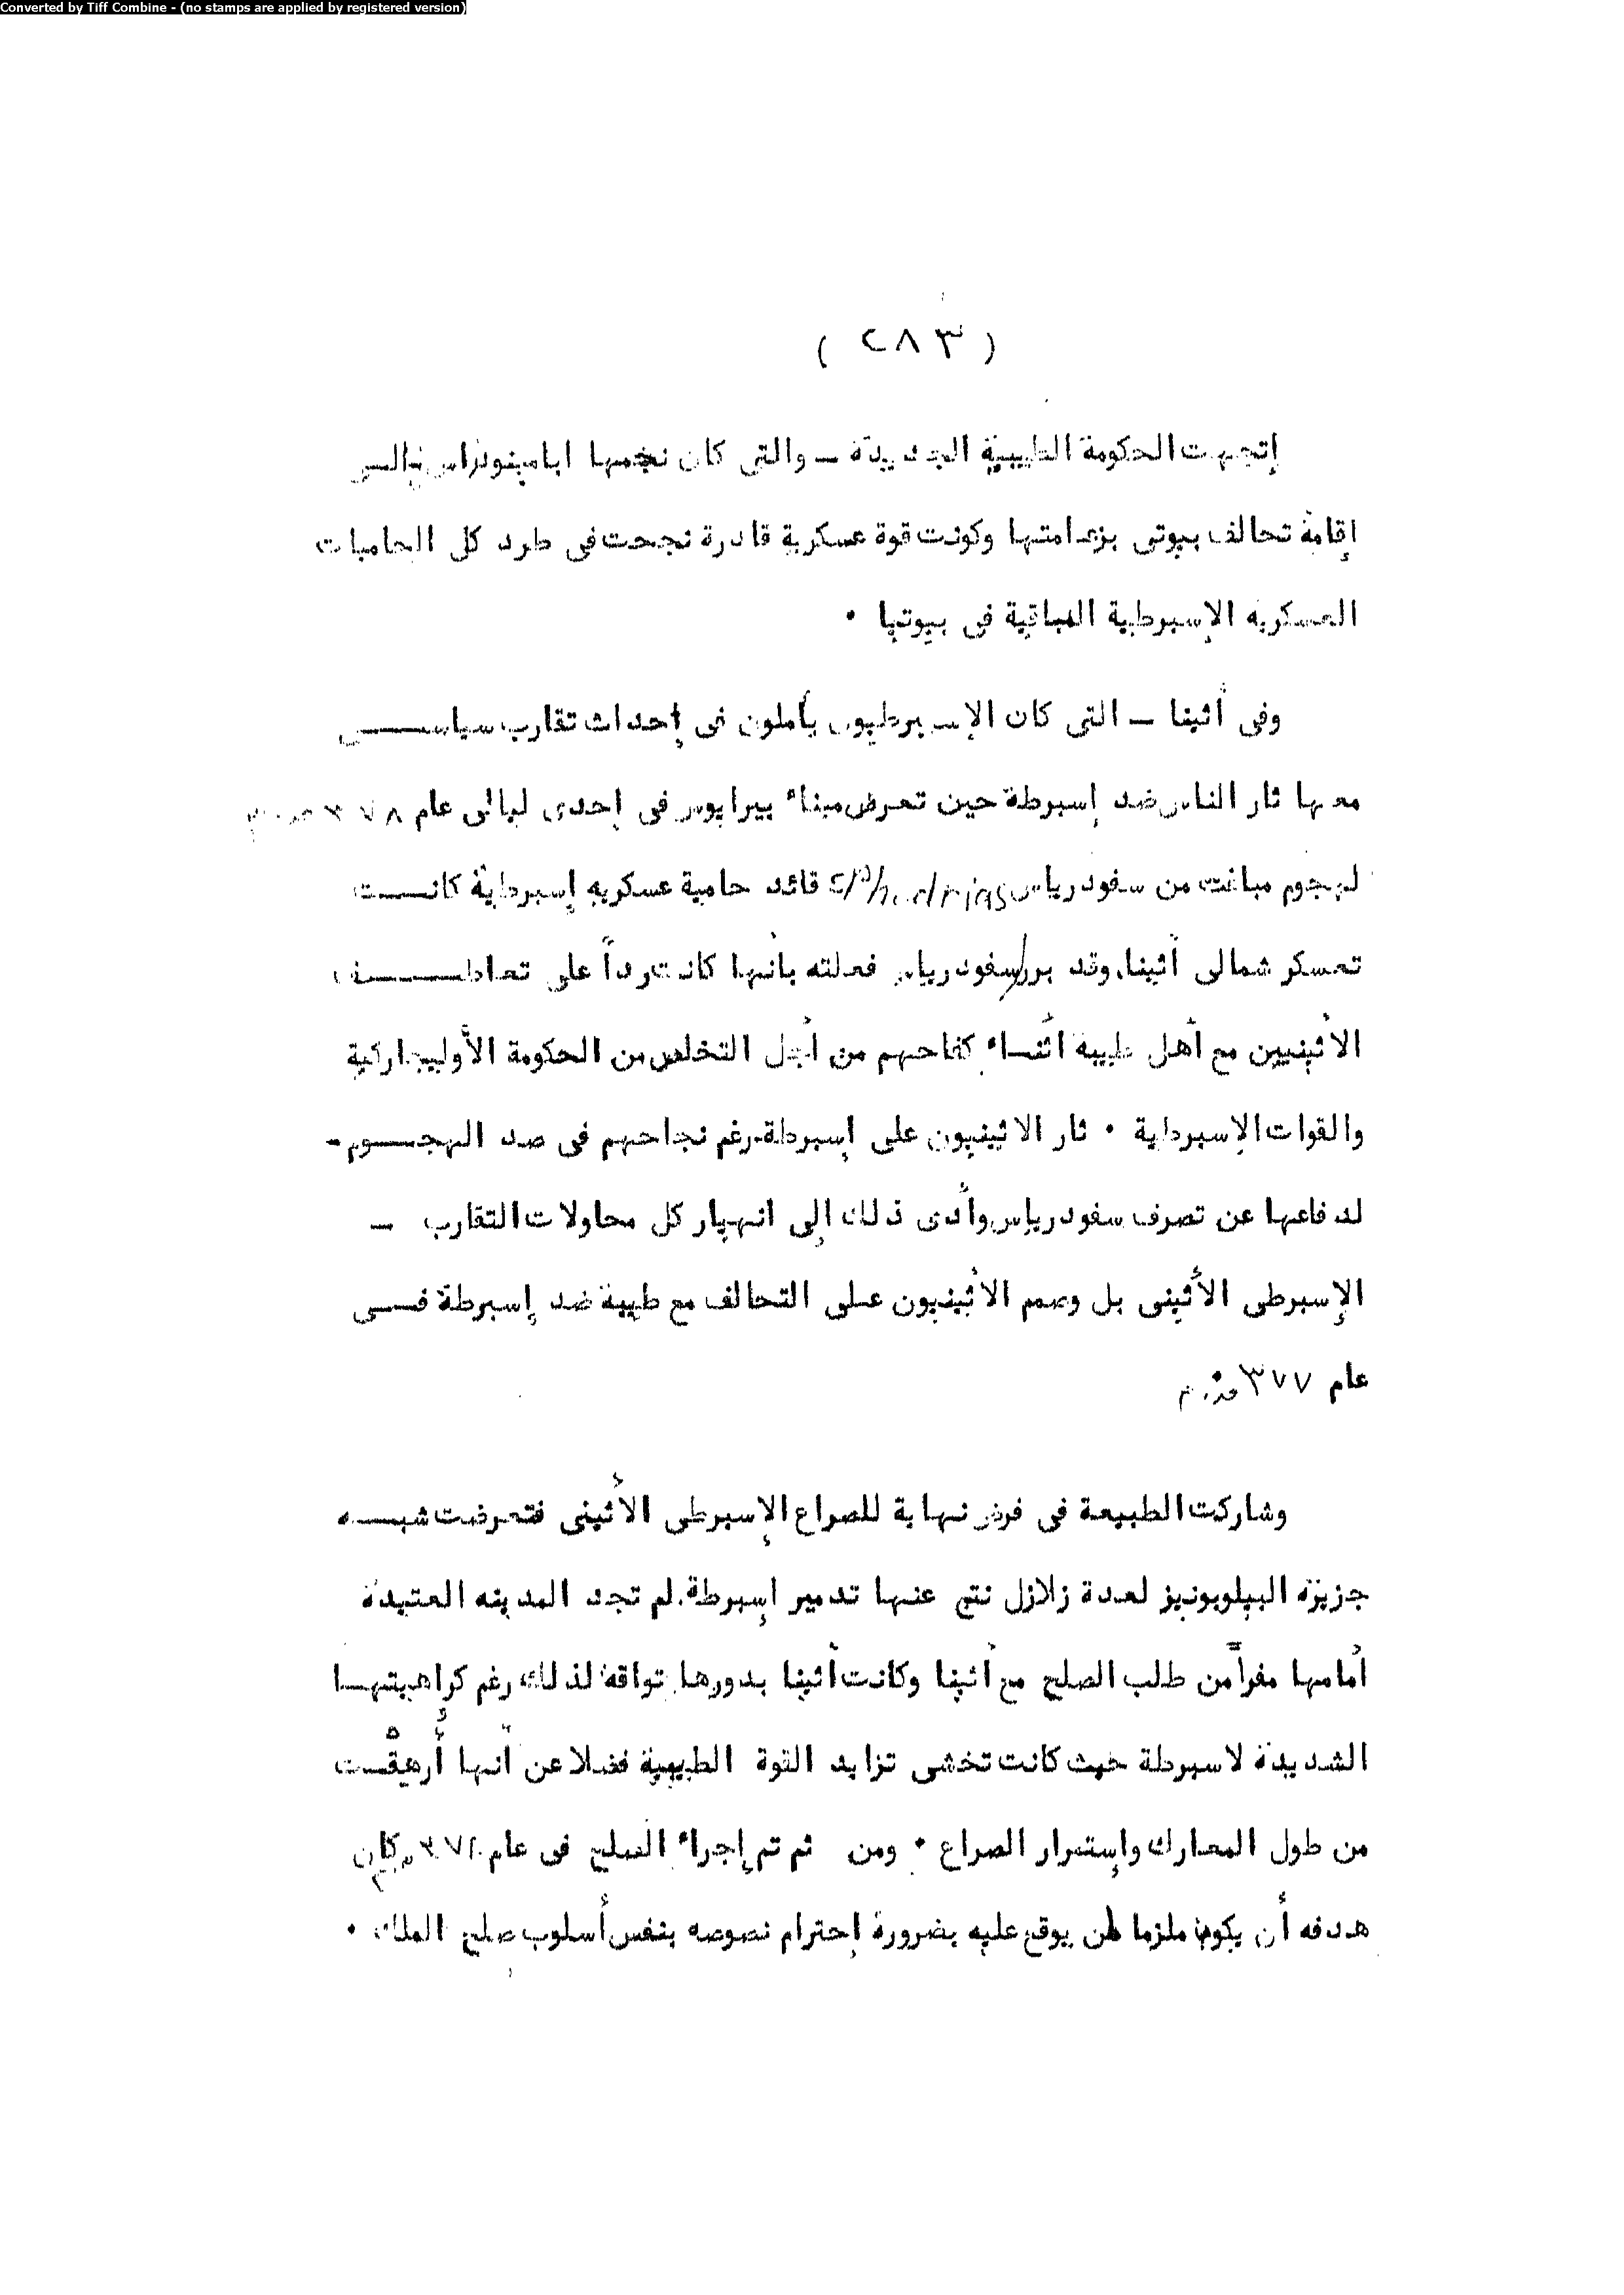 Converted by Tiff Combine - (no stamps are applied by registered version)
( ٢٨٣ )
إتجهت الحكومة الطيبية الجديدة ــ والتى كان نجمها ابامينونداس إلى
إقامة تحالف بيوتى بزعامتها وكونت قوة عسكرية قادرة نجحت فى طرد كل الحاميات
العسكريه الإسبرطية الباقية فى بيوتيا .
وفى أثينا ــ التى كان الإسبرطيون يأملون فى إحداث تقارب سياسى
معها ثار الناس ضد إسبرطة حين تعرض ميناء بيرايوس فى إحدى ليالى عام ٣٧٨
لهجوم مباغت من سفودرياس Sphodrias قائد حامية عسكريه إسبرطية كانت
تعسكر شمالى أثينا، وقد برر سفودرياس فعلته بأنها كانت رداً على تعاطف
الأثينيين مع أهل طيبة أثناء كفاحهم من أجل التخلص من الحكومة الأوليجاركية
والقوات الإسبرطية . ثار الاثينيون على إسبرطة-رغم نجاحهم فى صد الهجوم-
لدفاعها عن تصرف سفودرياس وأدى ذلك إلى انهيار كل محاولات التقارب ــ
الإسبرطى الأثينى بل وصمم الأثينيون على التحالف مع طيبة ضد إسبرطة فى
عام ٣٧٧ ق.م
وشاركت الطبيعة فى فرض نهاية للصراع الإسبرطى الأثينى فتعرضت شبه
جزيرة البيلوبونيز لعدة زلازل نتج عنها تدمير إسبرطة. لم تجد المدينه العتيدة
أمامها مفراً من طلب الصلح مع أثينا وكانت أثينا بدورها تواقة لذلك رغم كراهيتها
الشديدة لاسبرطة حيث كانت تخشى تزايد القوة الطيبية فضلا عن أنها أُرهقت
من طول المعارك وإستمرار الصراع . ومن ثم تم إجراء الصلح فى عام كان
هدفه أن يكون ملزما لمن يوقع عليه بضرورة إحترام نصوصه بنفس أسلوب صلح الملك .